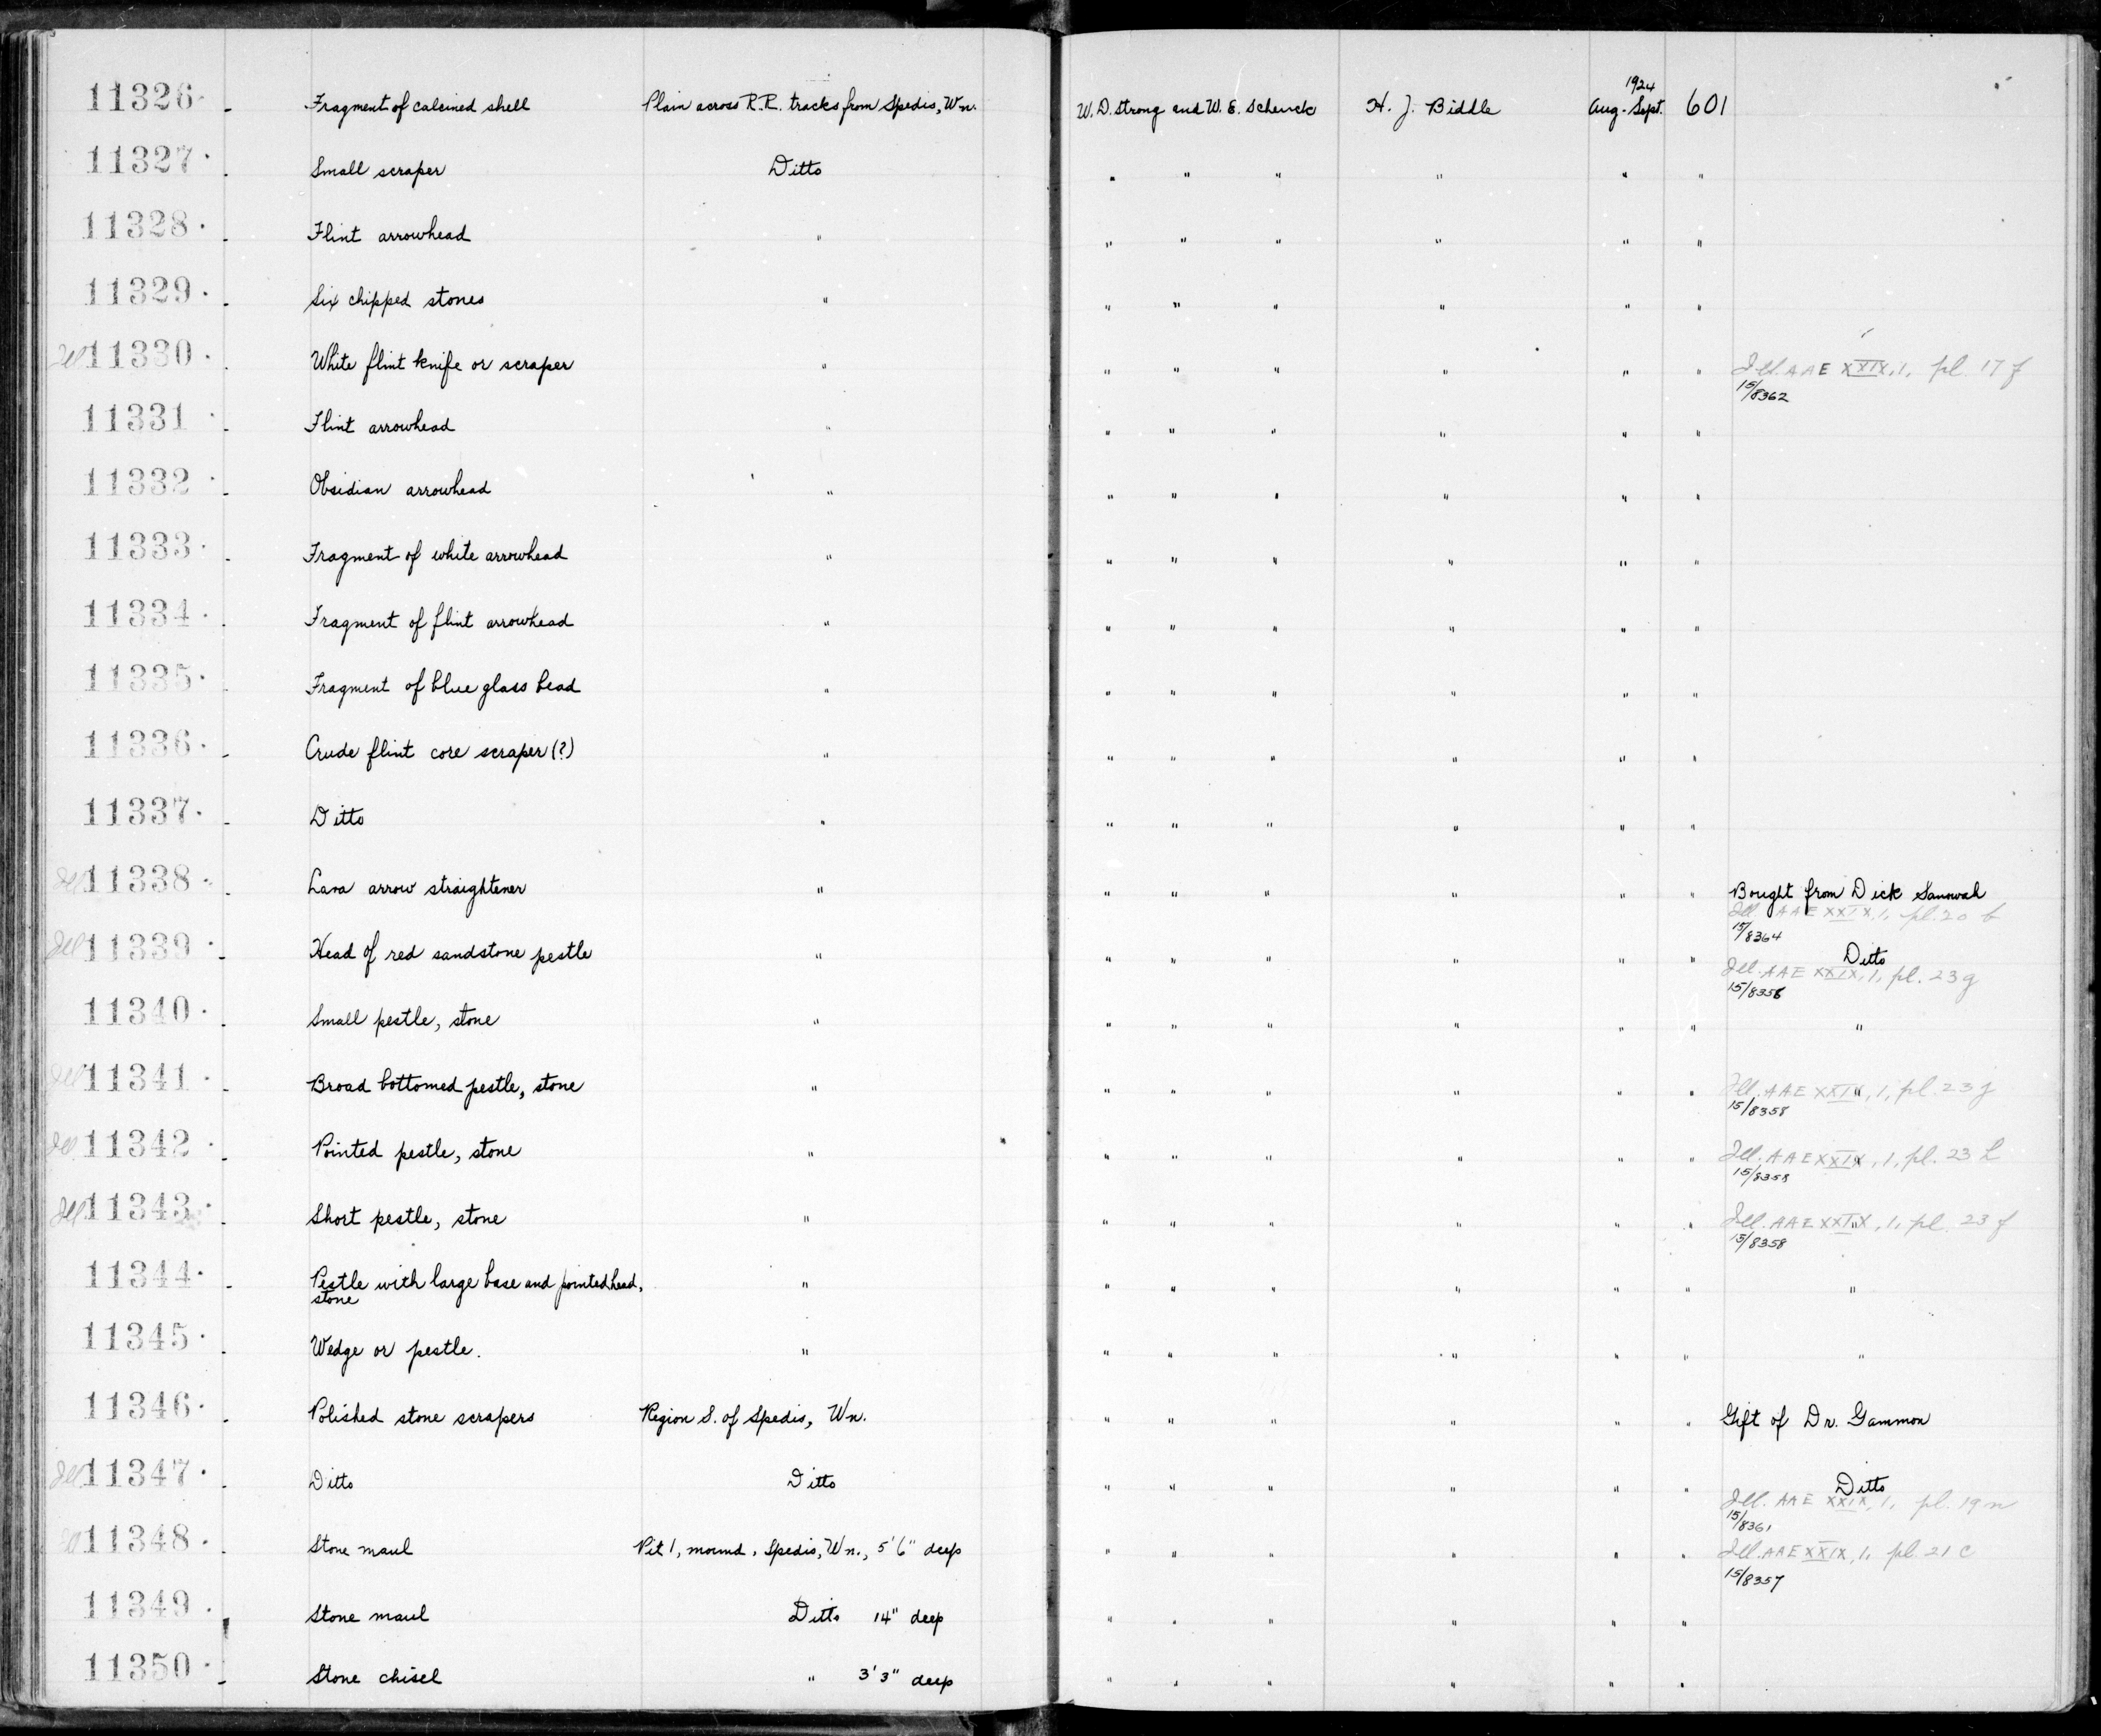 11326 Fragment of calcined shell Plain across R.R. tracks from Spedis, Wn. W. D. Strong and W. E. Schenck H. J. Biddle 1924 Aug-Sept. 601
11327 Small scraper Ditto " " " " " "
11328 Flint arrowhead " " " " " " "
11329 Six chipped stones " " " " " " "
Ill 11330 White flint knife or scraper " " " " " " " Ill. AAE XXIX, 1, pl. 17 f
15/8362
11331 Flint arrowhead " " " " " " "
11332 Obsidian arrowhead " " " " " " "
11333 Fragment of white arrowhead " " " " " " "
11334 Fragment of flint arrowhead " " " " " " "
11335 Fragment of blue glass bead " " " " " " "
11336 Crude flint core scraper (?) " " " " " " "
11337 Ditto " " " " " " "
Ill 11338 Lava arrow straightener " " " " " " " Bought from Dick Sannwah
Ill. AAE XXIX, 1, pl. 20 b
15/8364
Ill 11339 Head of red sandstone pestle " " " " " " " Ditto
Ill. AAE XXIX, 1, pl. 23 g
15/8358
11340 Small pestle, stone " " " " " " " "
Ill 11341 Broad bottomed pestle, stone " " " " " " " Ill. AAE XXIX, 1, pl. 23 j
15/8358
Ill 11342 Pointed pestle, stone " " " " " " " Ill. AAE XXIX, 1, pl. 23 h
15/8358
Ill 11343 Short pestle, stone " " " " " " " Ill. AAE XXIX, 1, pl. 23 f
15/8358
11344 Pestle with large base and pointed head, " " " " " " " "
stone
11345 Wedge or pestle. " " " " " " " "
11346 Polished stone scrapers Region S. of Spedis, Wn. " " " " " " Gift of Dr. Gammon
Ill 11347 Ditto Ditto " " " " " " Ditto
Ill. AAE XXIX, 1, pl. 19 n
15/8361
Ill 11348 Stone maul Pit 1, mound, Spedis, Wn., 5'6" deep " " " " " " Ill. AAE XXIX, 1, pl. 21 c
15/8357
11349 Stone maul Ditto 14" deep " " " " " "
11350 Stone chisel " 3'3" deep " " " " " "